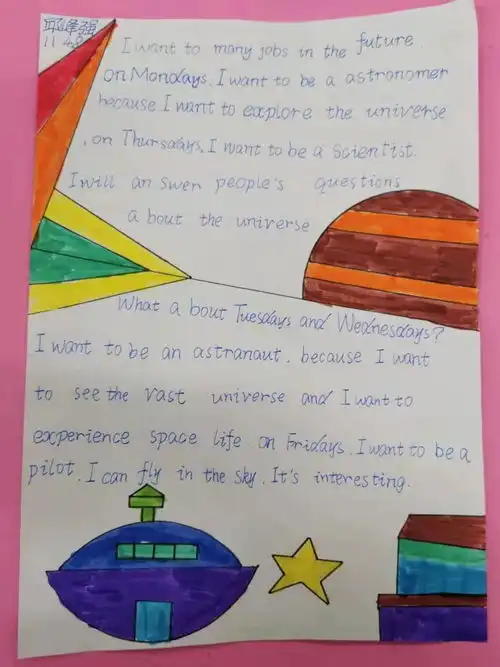 I want to many jobs in the future.
on Mondays, I want to be a astronomer
because I want to explore the universe
, on Thursdays, I want to be a scientist.
I will an swer people's questions
a bout the universe
What a bout Tuesdays and Wednesdays?
I want to be an astranaut. because I want
to see the vast universe and I want to
experience space life on Fridays. I want to be a
pilot. I can fly in the sky. It's interesting.